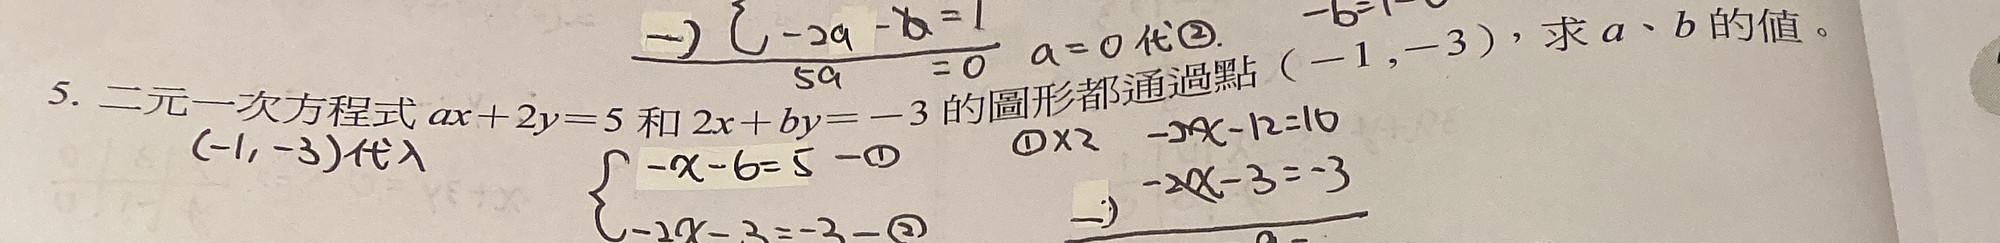 -b=1-0
—) { -2a -b =1
5a =0 a=0代②.
5. 二元一次方程式 ax+2y=5 和 2x+by=-3 的圖形都通過點(-1,-3),求 a、b 的值。
(-1,-3)代入
{ -x-6=5 -①
-2x-3=-3-②
①×2 -2x-12=10
—) -2x-3=-3